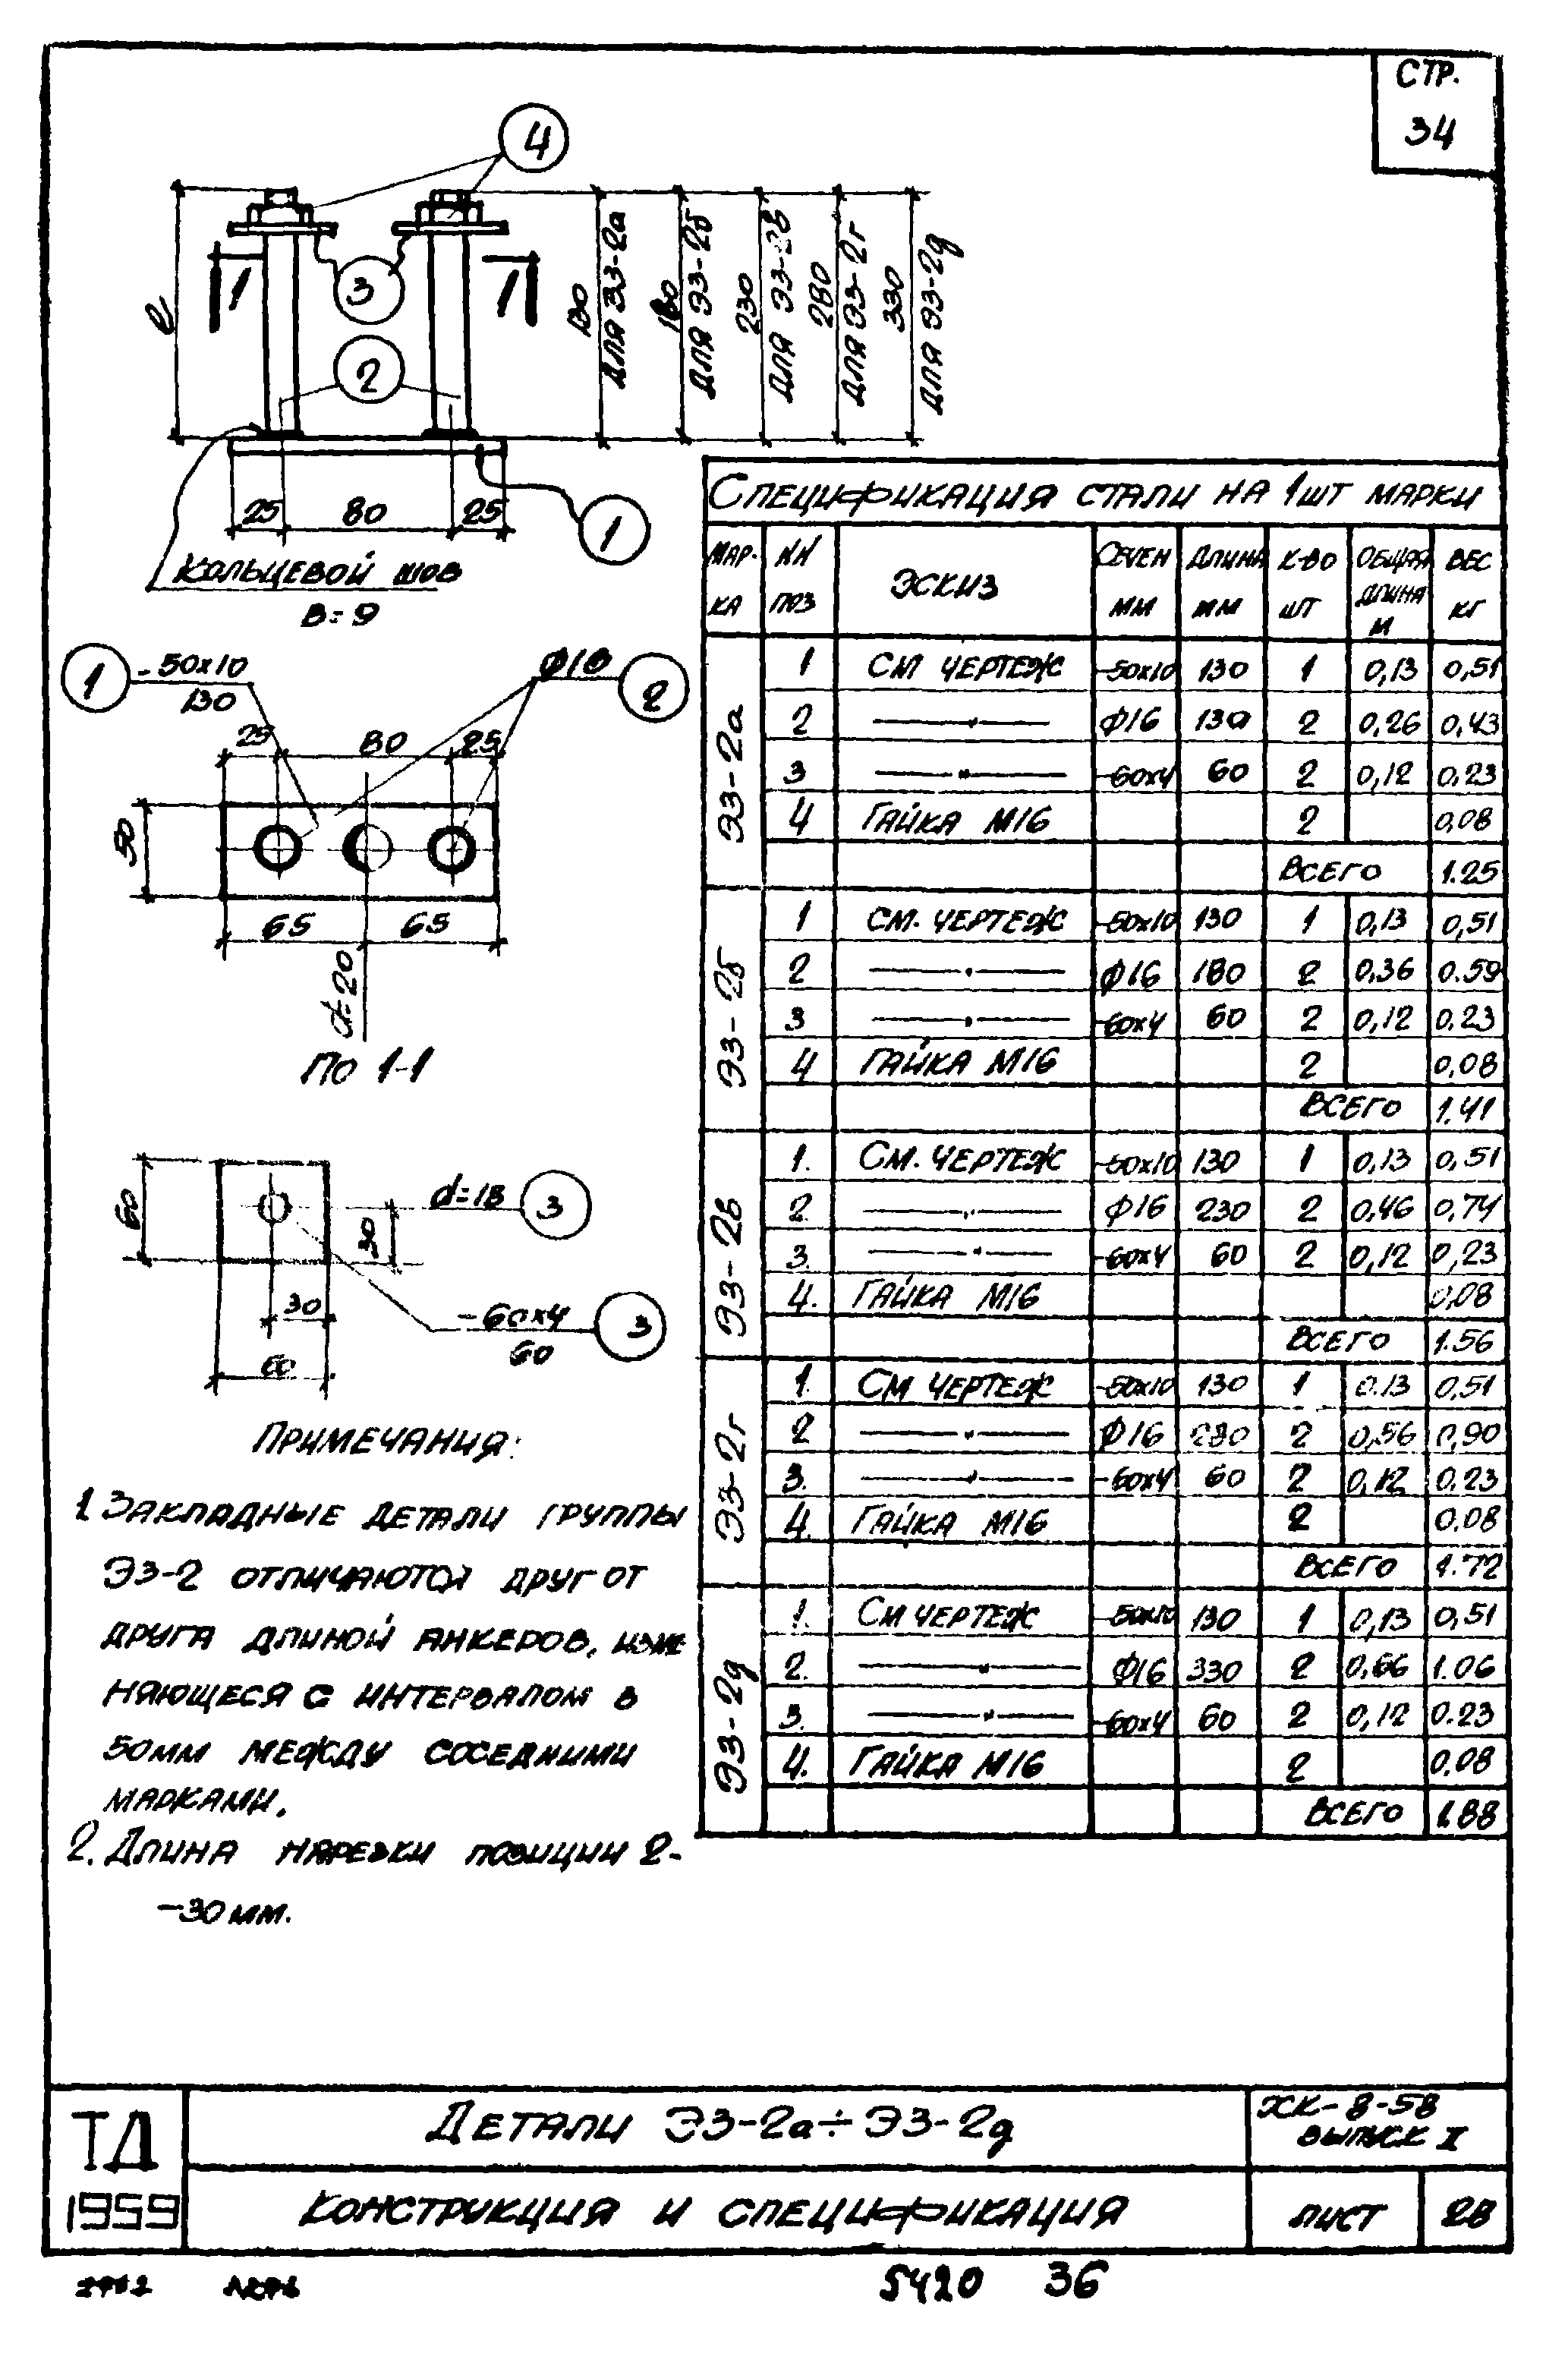 СТР.
34
4
3
2
1
1 1
ℓ
130
ДЛЯ ЭЗ-2а
180
ДЛЯ ЭЗ-2б
230
ДЛЯ ЭЗ-2в
280
ДЛЯ ЭЗ-2г
330
ДЛЯ ЭЗ-2д
25 80 25
КОЛЬЦЕВОЙ ШОВ
В=9
1 -50х10
130
Ф16 2
25 80 25
50
65 65
d=20
ПО 1-1
60
d=18 3
30
30
60
-60х4 3
60
ПРИМЕЧАНИЯ:
1 ЗАКЛАДНЫЕ ДЕТАЛИ ГРУППЫ
ЭЗ-2 ОТЛИЧАЮТСЯ ДРУГ ОТ
ДРУГА ДЛИНОЙ АНКЕРОВ, ИЗМЕ
НЯЮЩЕСЯ С ИНТЕРВАЛОМ В
50ММ МЕЖДУ СОСЕДНИМИ
МАРКАМИ.
2. ДЛИНА НАРЕЗКИ ПОЗИЦИИ 2-
-30ММ.
СПЕЦИФИКАЦИЯ СТАЛИ НА 1ШТ МАРКИ
МАР-КА NN ПОЗ ЭСКИЗ СЕЧЕН ММ ДЛИНА ММ К-ВО ШТ ОБЩАЯ ДЛИНА М ВЕС КГ
ЭЗ-2а
1 СМ ЧЕРТЕЖ -50х10 130 1 0,13 0,51
2 —"— Ф16 130 2 0,26 0,43
3 —"— -60х4 60 2 0,12 0,23
4 ГАЙКА М16 2 0,08
ВСЕГО 1.25
ЭЗ-2б
1 СМ. ЧЕРТЕЖ -50х10 130 1 0,13 0,51
2 —"— Ф16 180 2 0,36 0.59
3 —"— -60х4 60 2 0,12 0.23
4 ГАЙКА М16 2 0,08
ВСЕГО 1.41
ЭЗ-2в
1. СМ. ЧЕРТЕЖ -50х10 130 1 0,13 0,51
2. —"— Ф16 230 2 0,46 0,74
3. —"— -60х4 60 2 0,12 0,23
4. ГАЙКА М16 0,08
ВСЕГО 1.56
ЭЗ-2г
1. СМ ЧЕРТЕЖ -50х10 130 1 0.13 0,51
2 —"— Ф16 280 2 0,56 0,90
3. —"— -60х4 60 2 0,12 0.23
4. ГАЙКА М16 2 0.08
ВСЕГО 1.72
ЭЗ-2д
1. СМ ЧЕРТЕЖ -50х10 130 1 0,13 0,51
2. —"— Ф16 330 2 0,66 1.06
3. —"— -60х4 60 2 0,12 0.23
4. ГАЙКА М16 2 0.08
ВСЕГО 1.88
ТД
1959
ДЕТАЛИ ЭЗ-2а÷ЭЗ-2д
КОНСТРУКЦИЯ И СПЕЦИФИКАЦИЯ
ЖК-8-58
ВЫПУСК II
ЛИСТ 28
5420 36